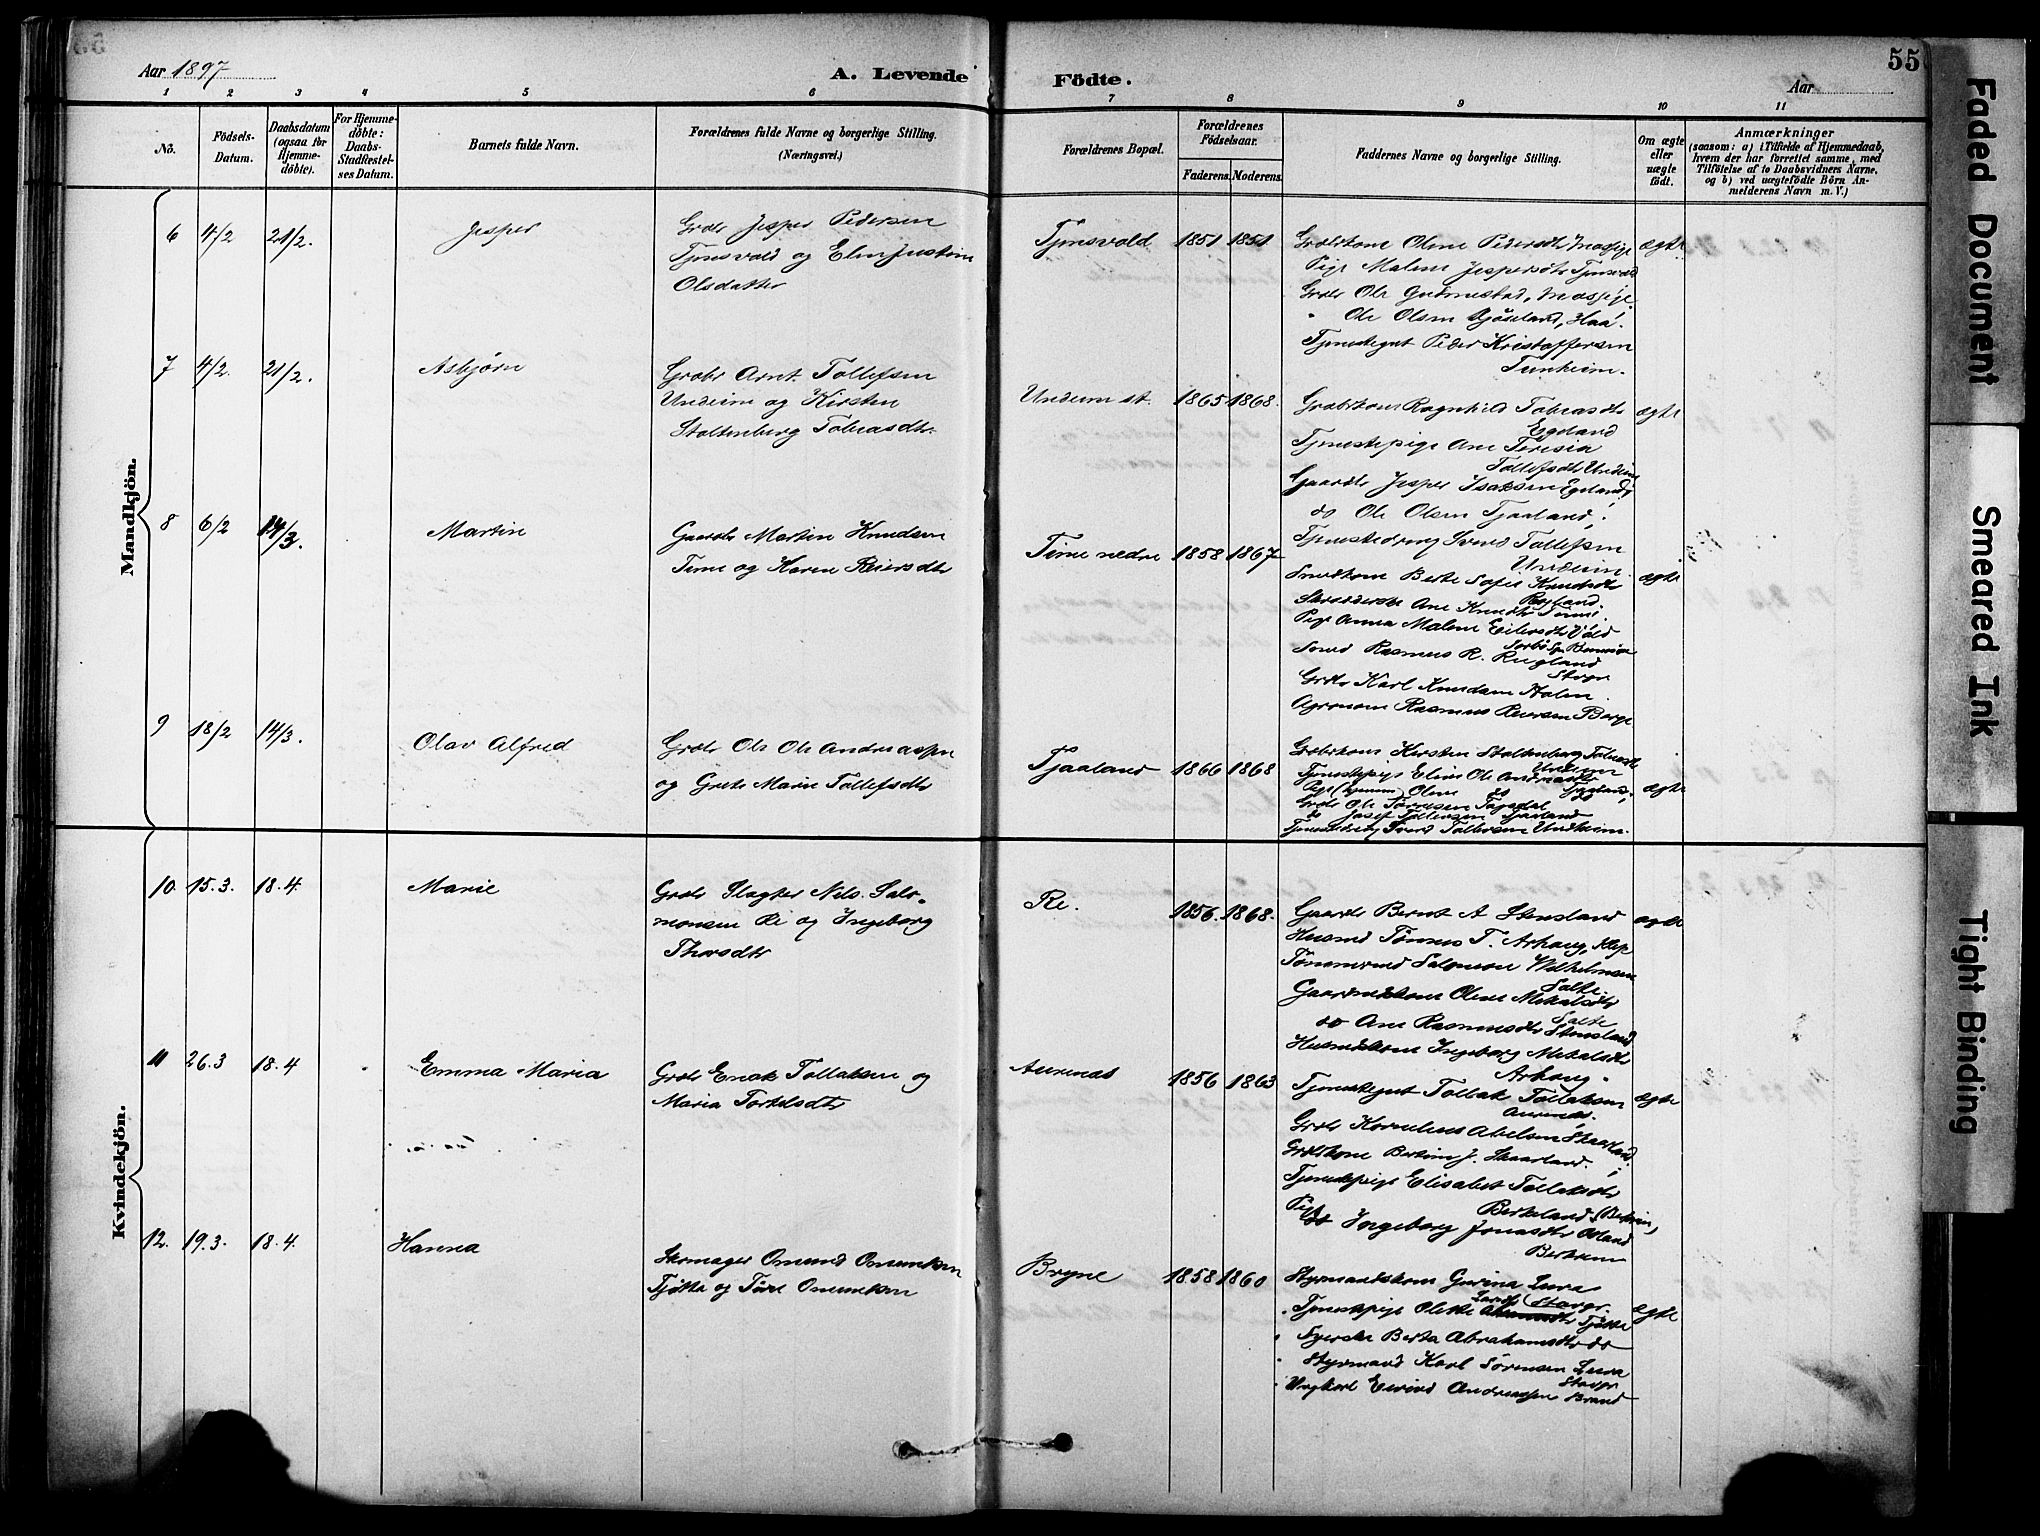 Aar 1897
A. Levende Födte.
Aar
55
1 2 3 4 5 6 7 8 9 10 11
No.
Födsels-Datum.
Daabsdatum (ogsaa for Hjemme-døbte).
For Hjemme-døbte: Daabs-Stadfæstel-ses Datum.
Barnets fulde Navn.
Forældrenes fulde Navne og borgerlige Stilling. (Næringsvei.)
Forældrenes Bopæl.
Forældrenes Födselsaar.
Faderens. Moderens.
Faddernes Navne og borgerlige Stilling.
Om ægte eller uægte født.
Anmærkninger
(saasom: a) i Tilfælde af Hjemmedaab,
hvem der har forrettet samme, med
Tilföielse af to Daabsvidners Navne,
og b) ved uægtefödte Börn An-
melderens Navn m. V.)
Mandkjön.
6 4/2 21/2. Jesper
Grdbr Jesper Pedersen
Tjensvold og Elen Justine
Olsdatter
Tjensvold 1851 1851
Grdbrkone Olene Pedersdtr Mossige
Pige Malene Jespersdtr Tjensvold
Grdbr Ole Gudmestad, Mossige.
" Ole Olsen Njöseland, Haa.
Tjenestegut Peder Kristoffersen
Tunheim.
ægte
7 4/2. 21/2. Asbjørn
Grdbr Arnt Tollefsen
Undeim og Kirsten
Stoltenberg Tobiasdtr.
Undeim st. 1865 1868.
Grdbrkone Ragnhild Tobiasdtr
Egeland
Tjenestepige Ane Teresia
Tollefsdtr Undeim
Gaardbr Jesper Isaksen Egeland,
do Ole Olsen Tjaaland,
Tjenestedreng Sivert Tollefsen
Undeim
ægte
8 6/2 14/3. Martin
Gaardbr Martin Knudsen
Time og Karen Reiersdtr
Time nedre 1858 1867
Smedkone Berte Sofie Knudsdtr
Rogland.
Skrædderske Ane Knudsdtr Time.
Pige Anna Malene Eilersdtr Vold
Smed Rasmus R. Rugland
Stavgr
Grdbr Karl Knudsen Holen.
Agronom Rasmus Reiersen Borge
ægte
9 18/2 14/3. Olav Alfred
Grdbr Ole Ole Andreassen
og Grete Marie Tollefsdtr
Tjaaland 1866 1868
Grdbrkone Kirsten Stoltenberg Tobiasdtr
Undeim
Tjenestepige Eline Ole Andreasdtr
Pige (hjemme) Olene do Tjaaland,
Grdbr Ole Tønnesen Taksdal
do Josef Tollefsen Tjaaland
Tjenestedreng Sivert Tollefsen Undheim.
ægte
Kvindekjön.
10. 15.3. 18.4. Marie
Grdbr Slagter Nils Salo-
monsen Re og Ingeborg
Thorsdtr
Re. 1856. 1868.
Gaardbr Bernt A Stensland
Husmd Tønnes T. Arhaug, Klep
Tømmermd Salomon Wilhelmsen
Salte.
Gaardmdskone Olene Mikalsdtr
Salte
do Ane Rasmusdtr Stensland
Husmdskone Ingeborg Mikalsdtr
Arhaug.
ægte
11 26.3 18.4 Emma Maria
Grdbr Enok Tollaksen og
Maria Torkelsdtr
Aurenes 1856 1863
Tjenestegut Tollak Tollaksen
Aurenes.
Grdbr Kornelius Abelsen Skaarland,
Grdbrkone Bertine J. Skaarland.
Tjenestepige Elisabet Tollaksdtr
Berkeland, (Bjerkreim)
Pige Ingeborg Jonasdtr Osland
ægte
12. 19.3. 18.4. Hanna
Skomager Omund Omundsen
Tjøtta og Tore Omundsen
Bryne 1858 1860
Styrmandskone Gurina Lura
Stavgr.
Tjenestepige Olette Larsdtr Tjøtta
Syerske Berta Abrahamsdtr do
Styrmand Karl Sörensen Lura
Stavgr
Ungkarl Eivind Andreassen Brand
ægte
Faded Document
Smeared Ink
Tight Binding